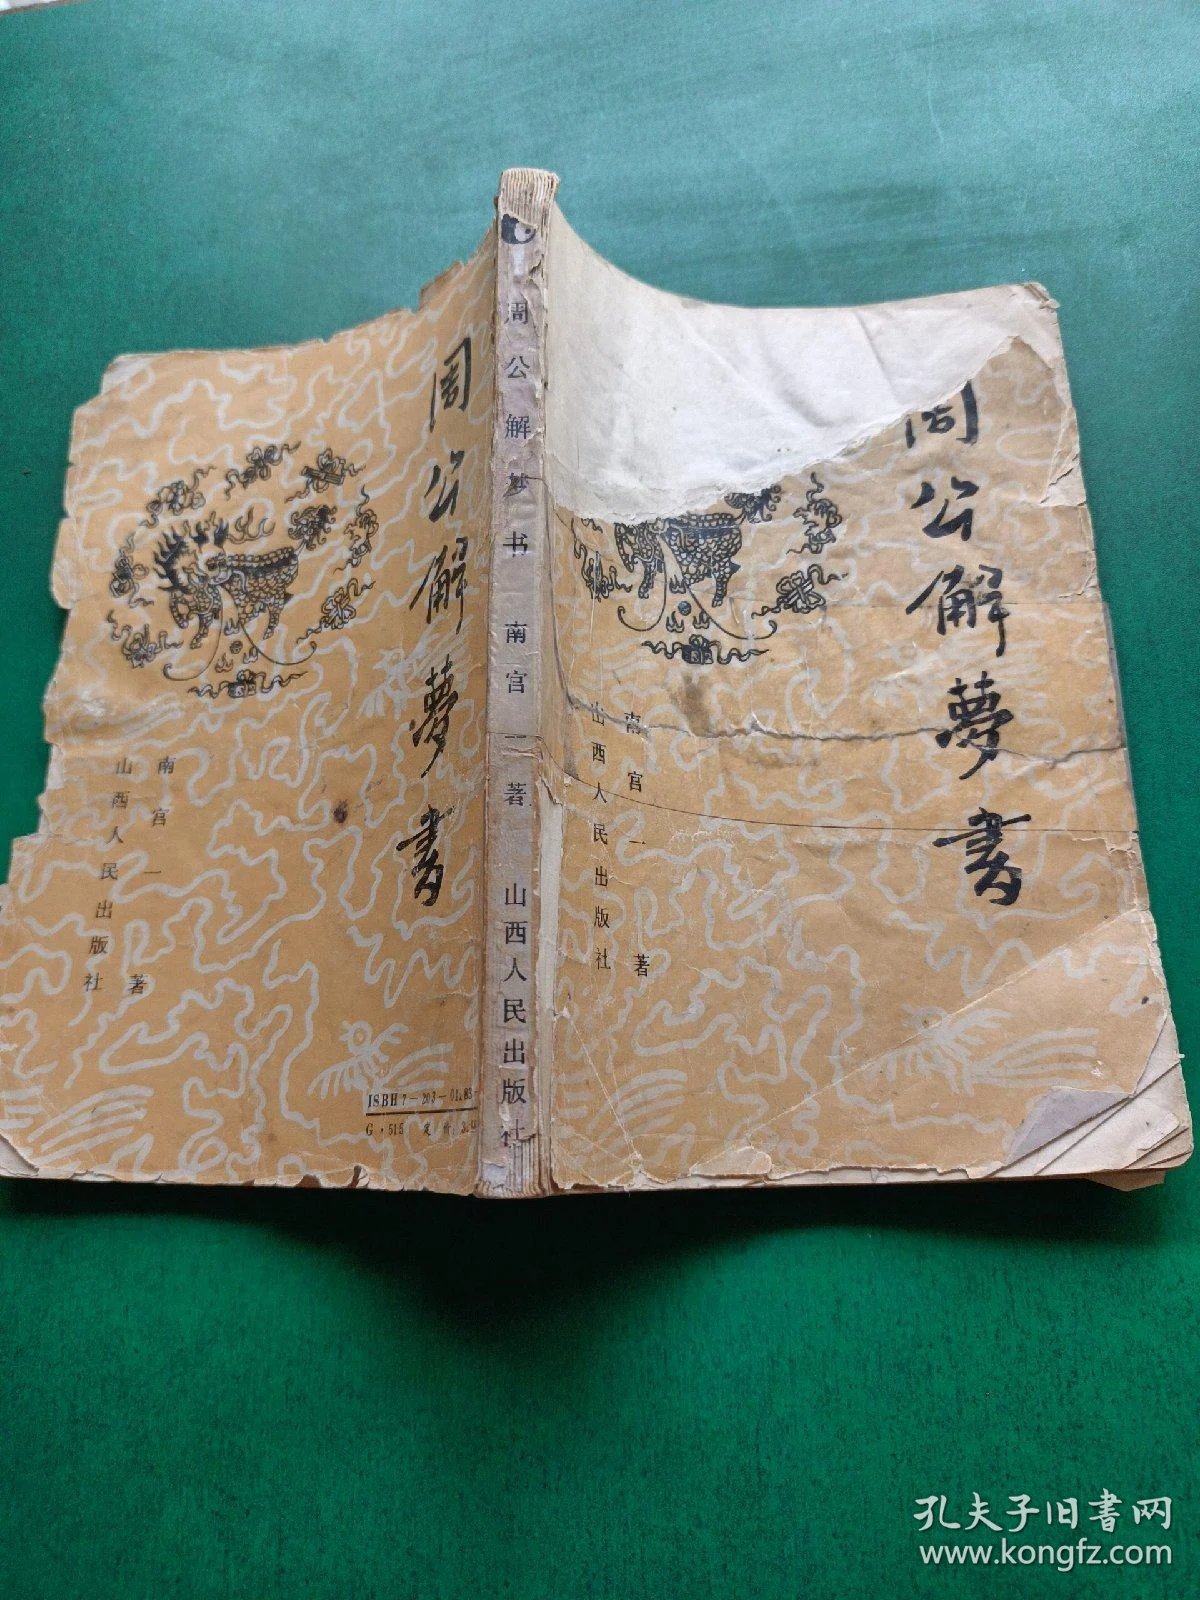 周公解夢書
南宫一著
山西人民出版社
ISBN7-203-01.83
G·515 定价 3.
周公解梦书 南宫一著 山西人民出版社
周公解夢書
南宫一著
山西人民出版社
孔夫子旧书网
www.kongfz.com